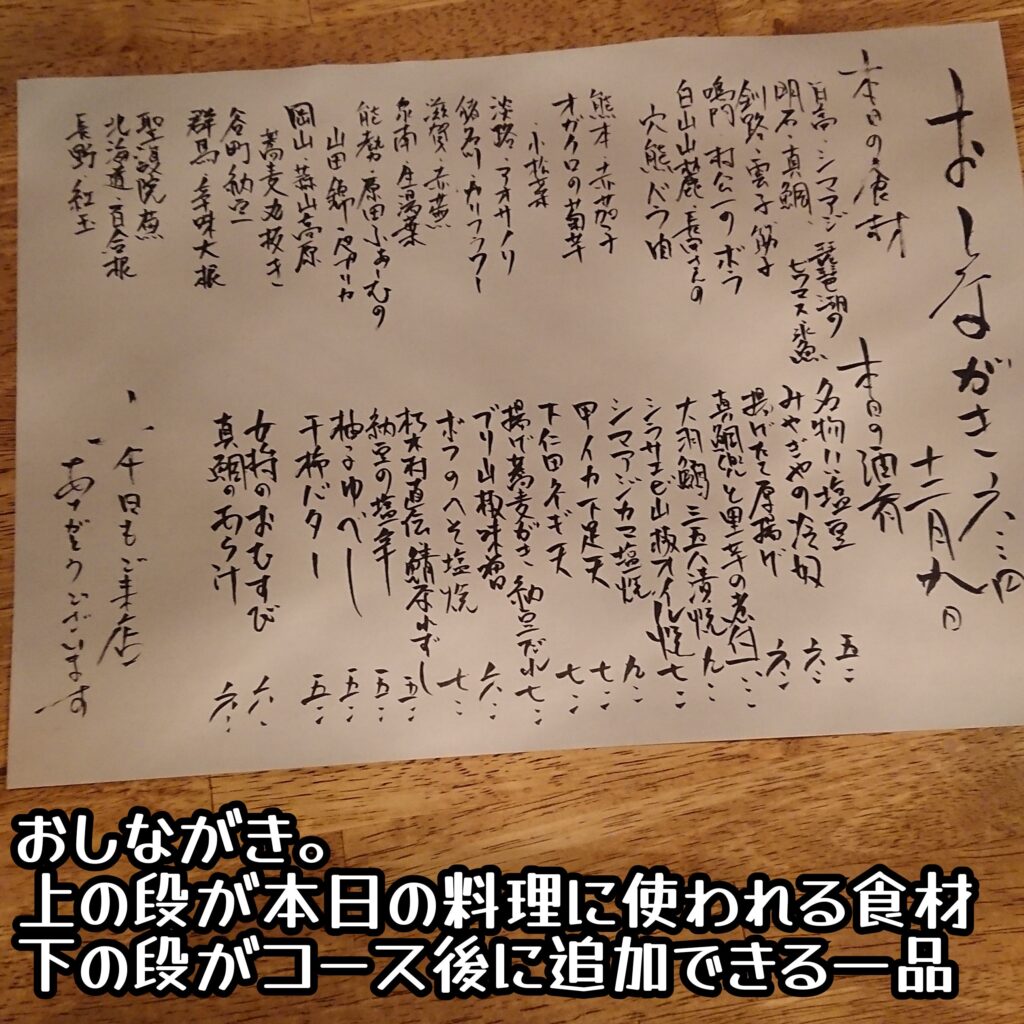 おしながき 六三四
十二月九日
本日の食材
日高・シマアジ 琵琶湖の
明石・真鯛 ヒワマス
釧路・雲子 筋子
鳴門・村公一のボラ
白山山麓 長高さんの
穴熊バラ肉
熊本・赤茄子
オガクロの菊芋
小松菜
淡路・アオサノリ
猪名川・カリフラワー
滋賀・赤蕪
泉南・産湯菜
能勢・原田ふぁーむの
山田錦・
岡山・蒜山高原
蕎麦丸抜き
谷町納豆
群馬・辛味大根
聖護院蕪
北海道・百合根
長野・紅玉
本日の酒肴
名物い塩豆 五〇〇
みやぎやの冷奴 六〇〇
揚げたて厚揚げ 六〇〇
真鯛兜と里芋の煮付
大羽鰯 三五八漬焼 九〇〇
シラサエビ山椒オイル焼 七〇〇
シマアジカマ塩焼 九〇〇
甲イカ下足天 七〇〇
下仁田ネギ天 七〇〇
揚げ蕎麦がき 納豆だれ 七〇〇
ブリ山椒味噌 六〇〇
ボラのへそ塩焼 七〇〇
朽木村直伝 鯖なれずし 五〇〇
納豆の塩辛 五五〇
柚子ゆべし 五五〇
干柿バター 五〇〇
女将のおむすび 六〇〇
真鯛のあら汁 六〇〇
今日もご来店
ありがとうございます
おしながき。
上の段が本日の料理に使われる食材
下の段がコース後に追加できる一品